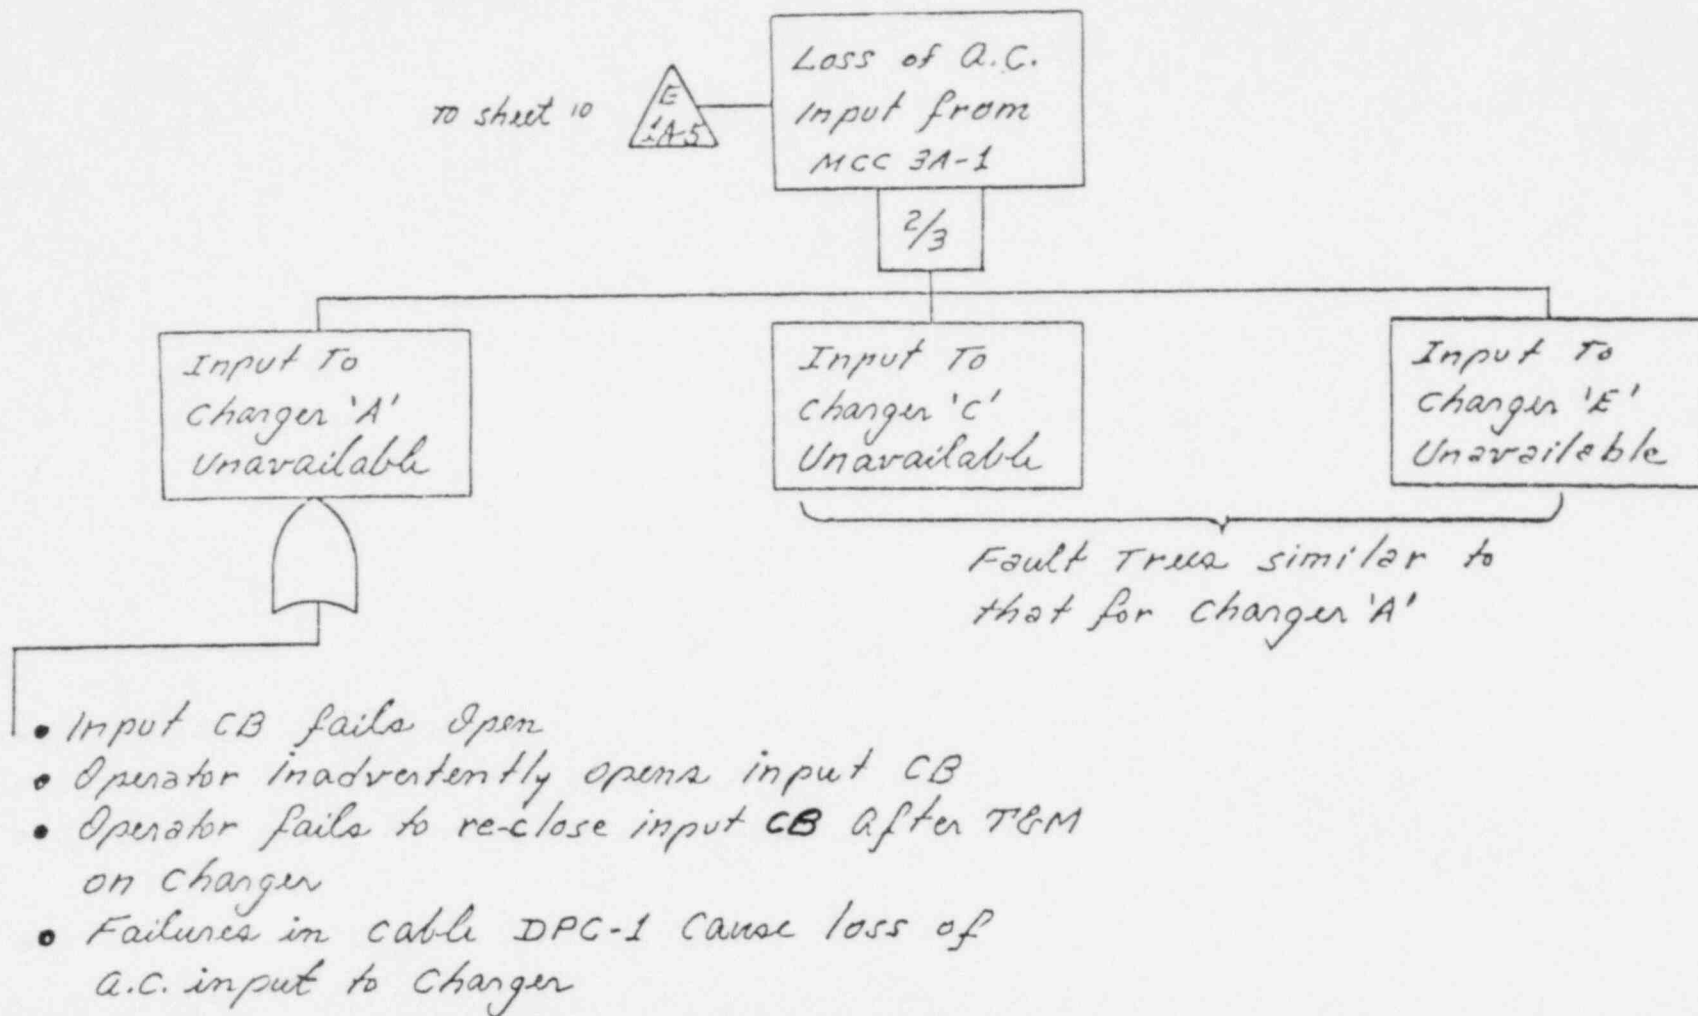 To sheet 10
E
1A-5
Loss of A.C.
Input from
MCC 3A-1
2/3
Input To
Charger 'A'
Unavailable
Input To
Charger 'C'
Unavailable
Input To
Charger 'E'
Unavailable
Fault Trees similar to
that for Charger 'A'
• Input CB fails Open
• Operator inadvertently opens input CB
• Operator fails to re-close input CB after T&M
on Charger
• Failures in cable DPC-1 cause loss of
a.c. input to Charger